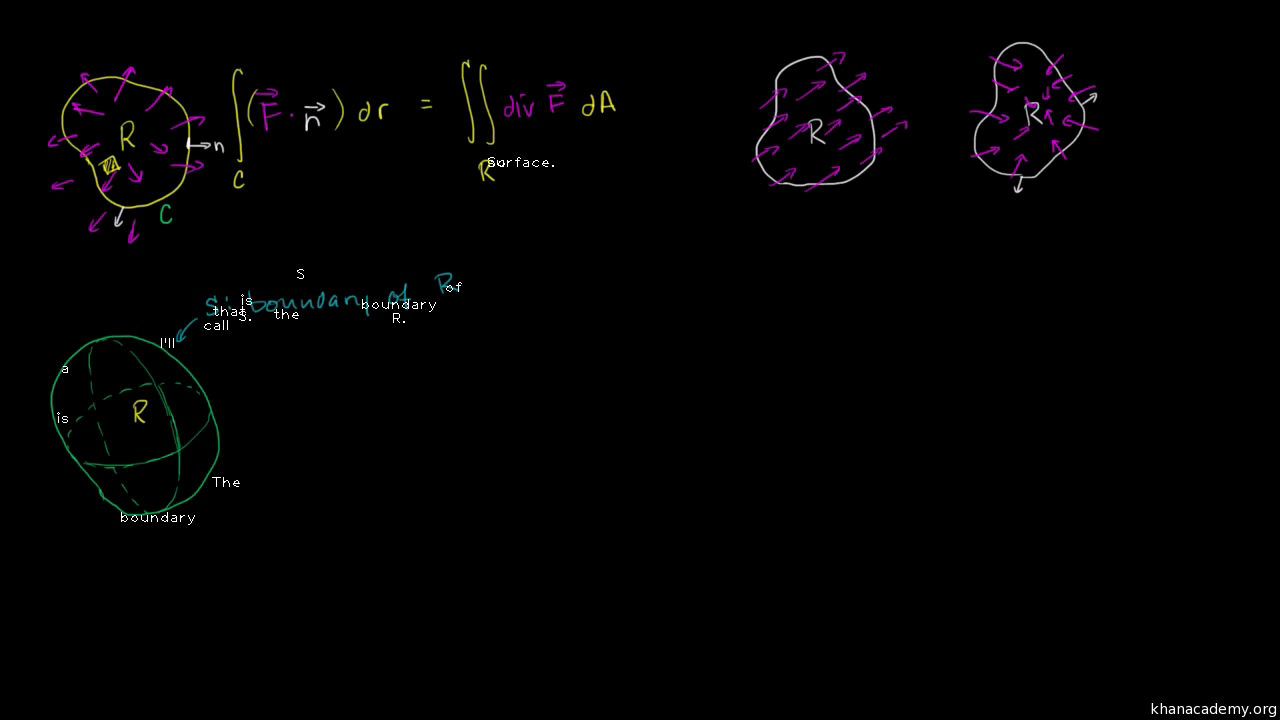 R
n
C
∫ (F⃗ · n⃗) dr = ∬ div F⃗ dA
C
R
surface.
R
R
S: boundary of R
S
is
of
that
S.
the
boundary
call
R.
I'll
a
is
R
The
boundary
khanacademy.org